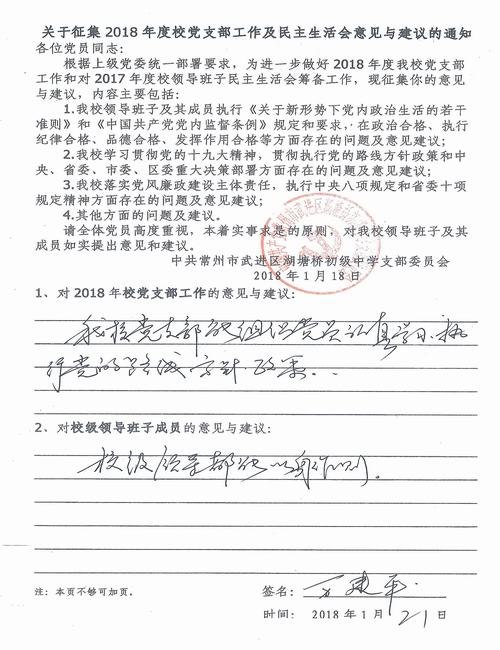 关于征集 2018 年度校党支部工作及民主生活会意见与建议的通知
各位党员同志：
根据上级党委统一部署要求，为进一步做好 2018 年度我校党支部
工作和对 2017 年度校领导班子民主生活会筹备工作，现征集你的意见
与建议，内容主要包括：
1.我校领导班子及其成员执行《关于新形势下党内政治生活的若干
准则》和《中国共产党党内监督条例》规定和要求，在政治合格、执行
纪律合格、品德合格、发挥作用合格等方面存在的问题及意见建议；
2.我校学习贯彻党的十九大精神，贯彻执行党的路线方针政策和中
央、省委、市委、区委重大决策部署方面存在的问题及意见建议；
3.我校落实党风廉政建设主体责任，执行中央八项规定和省委十项
规定精神方面存在的问题及意见建议；
4.其他方面的问题及建议。
请全体党员高度重视，本着实事求是的原则，对我校领导班子及其
成员如实提出意见和建议。
中共常州市武进区湖塘桥初级中学支部委员会
2018 年 1 月 18 日
1、对 2018 年校党支部工作的意见与建议：
我校党支部能组织党员认真学习、执
行党的路线、方针、政策。
2、对校级领导班子成员的意见与建议：
校级领导都能以身作则。
注：本页不够可加页。
签名：建平
时间：2018 年 1 月 21 日